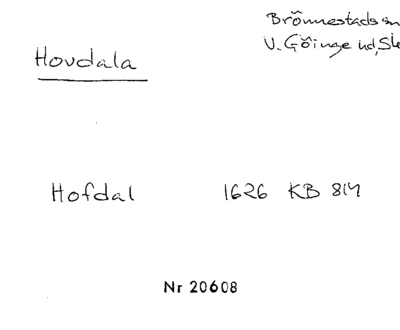 Brönnestads sn
V. Göinge hd, Sk
Hovdala
Hofdal 1626 KB 8/4
Nr 20608